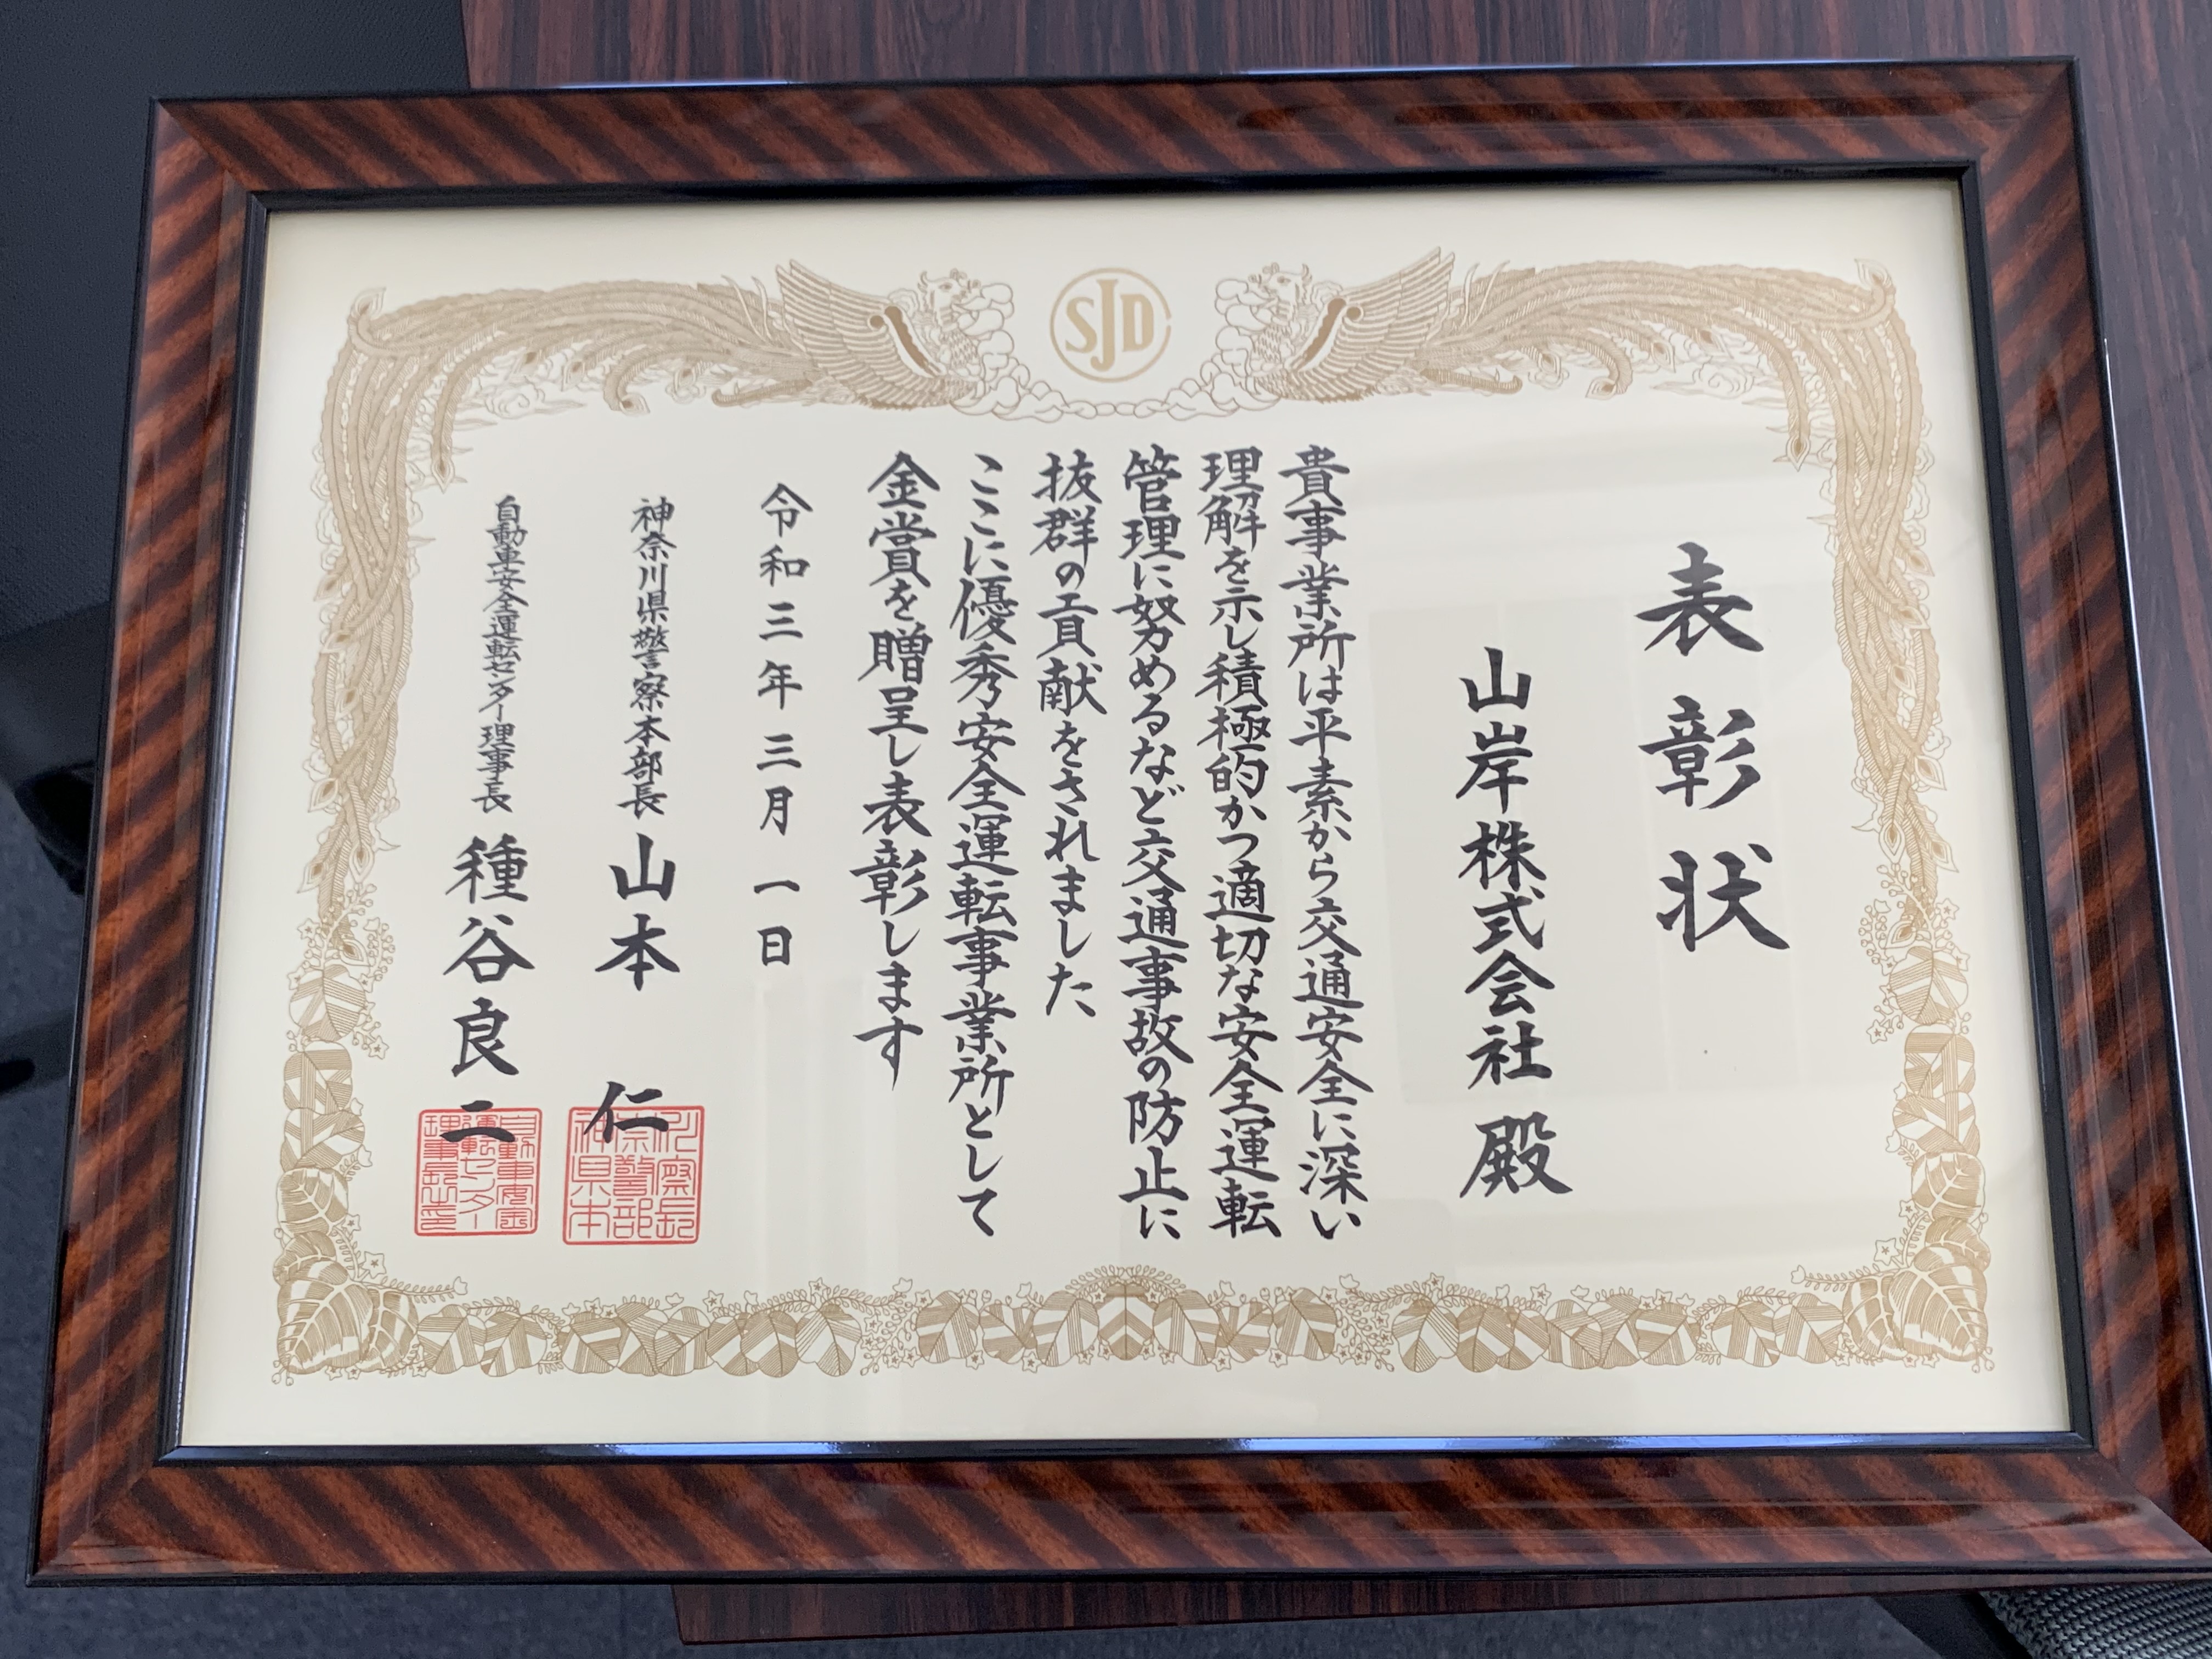 SJD
表彰状
山岸株式会社 殿
貴事業所は平素から交通安全に深い
理解を示し積極的かつ適切な安全運転
管理に努めるなど交通事故の防止に
抜群の貢献をされました
ここに優秀安全運転事業所として
金賞を贈呈し表彰します
令和三年三月一日
神奈川県警察本部長 山本 仁
自動車安全運転センター理事長 種谷良二